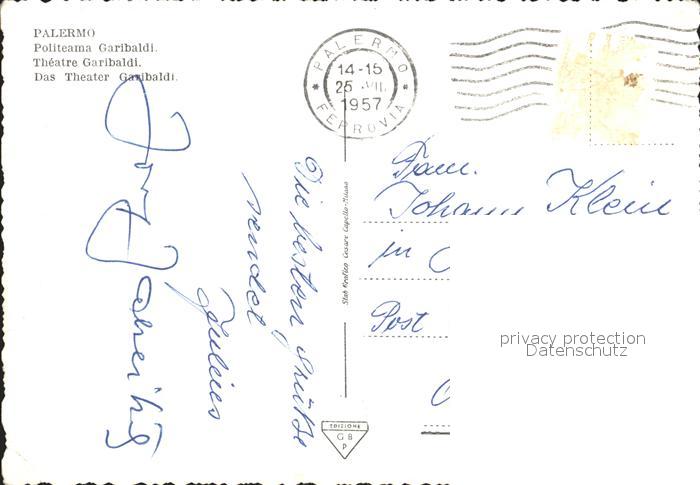 PALERMO
Politeama Garibaldi.
Théatre Garibaldi.
Das Theater Garibaldi.
PALERMO
14-15
25 VII
1957
FERROVIA
Die besten Grüße
sendet
Stab Grafico Cesare Capello-Milano
EDIZIONE
GB
P
Fam.
Johann Klein
in
Post
privacy protection
Datenschutz